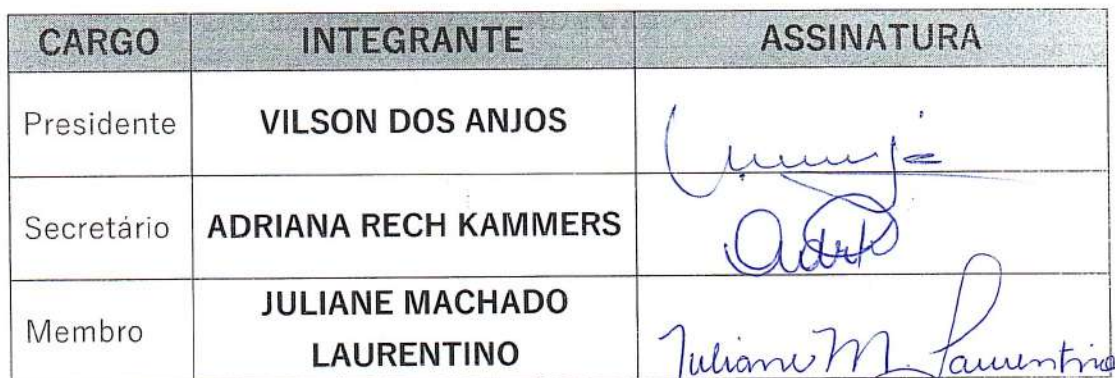 CARGO INTEGRANTE ASSINATURA
Presidente VILSON DOS ANJOS
Secretário ADRIANA RECH KAMMERS
JULIANE MACHADO
Membro
LAURENTINO
Juliane M. Laurentino